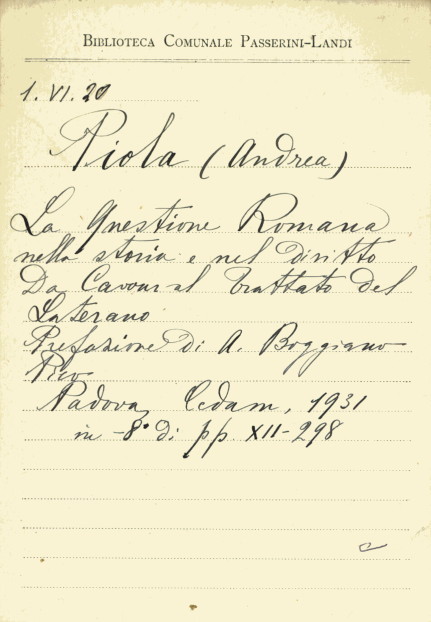 BIBLIOTECA COMUNALE PASSERINI-LANDI
1. VI. 20
Piola (Andrea)
La Questione Romana
nella storia e nel diritto
Da Cavour al Trattato del
Laterano
Prefazione di A. Boggiano
Pico
Padova, Cedam, 1931
in -8° di pp. XII-298